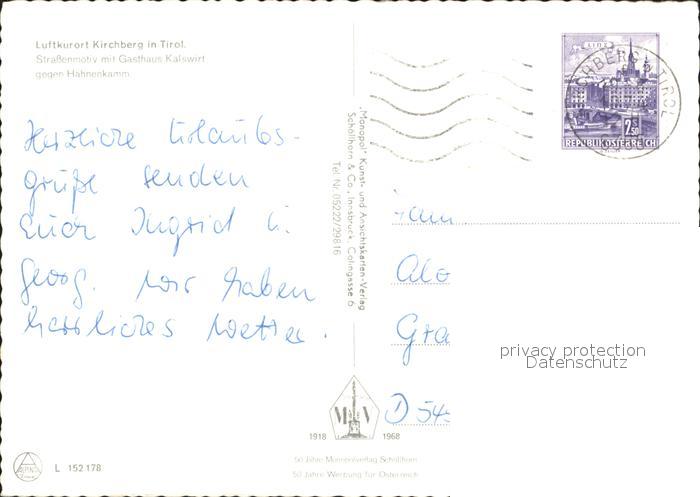 Luftkurort Kirchberg in Tirol.
Straßenmotiv mit Gasthaus Kalswirt
gegen Hahnenkamm
Herzliche Urlaubs-
grüße senden
Euch Ingrid u.
Georg. Wir haben
herrliches Wetter.
„Monopol" Kunst- und Ansichtskarten-Verlag
Schöllhorn & Co., Innsbruck, Colingasse 6
Tel. Nr. 05222/29816
LINZ
2.50
REPUBLIK ÖSTERREICH
TIROL
Fam
Alo
Gra
D 545
privacy protection
Datenschutz
M V
1918 1968
50 Jahre Monopolverlag Schöllhorn
50 Jahre Werbung für Österreich
ALPINA
L 152178